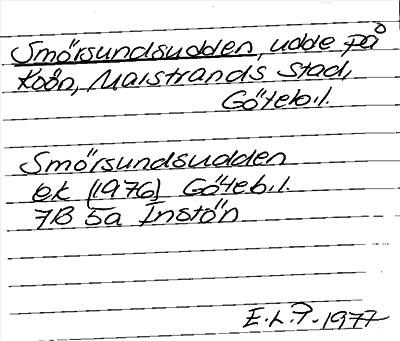 Smörsundsudden, udde på
Koön, Marstrands stad,
Göteb.l.
Smörsundsudden
ek (1976) Göteb.l.
7B 5a Instön
E.L.P. 1977